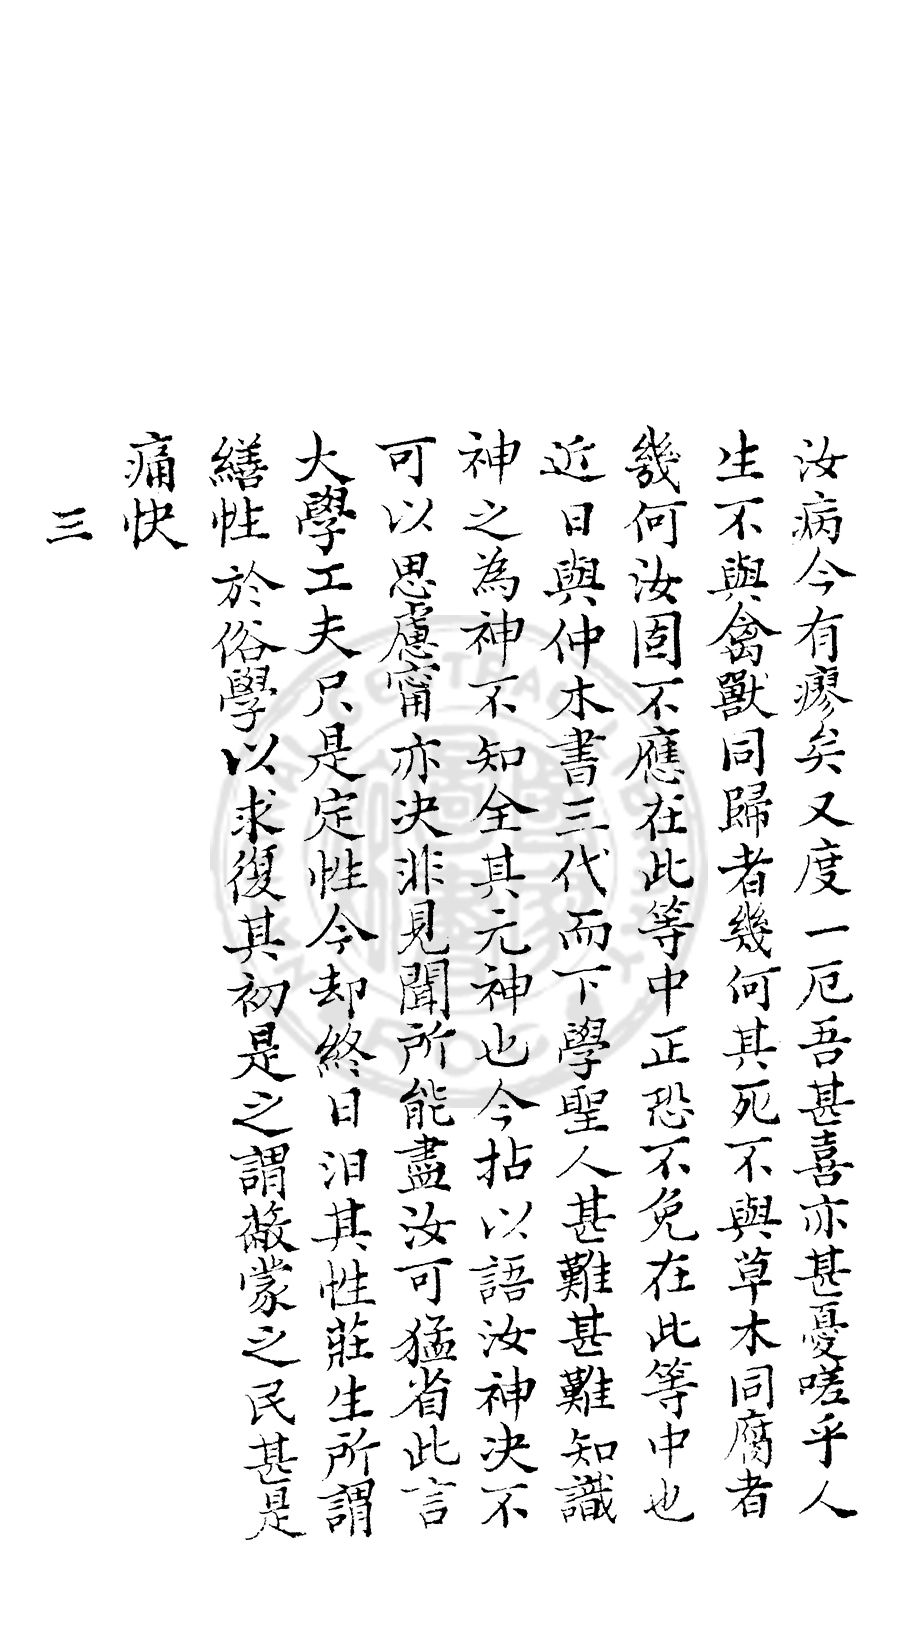 汝病今有瘳矣又度一厄吾甚喜亦甚憂嗟乎人
生不與禽獸同歸者幾何其死不與草木同腐者
幾何汝固不應在此等中正恐不免在此等中也
近日與仲木書三代而下學聖人甚難甚難知識
神之為神不知全其元神也今拈以語汝神决不
可以思慮甯亦决非見聞所能盡汝可猛省此言
大學工夫只是定性今却終日汩其性莊生所謂
繕性於俗學以求復其初是之謂蔽蒙之民甚是
痛快
三